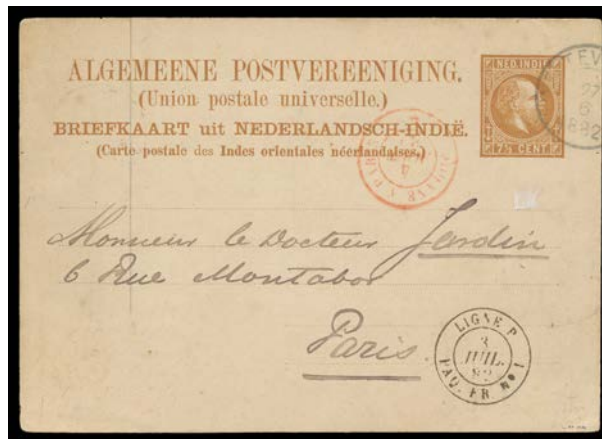 ALGEMEENE POSTVEREENIGING.
(Union postale universelle.)
BRIEFKAART uit NEDERLANDSCH-INDIË.
(Carte postale des Indes orientales néerlandaises.)
NED. INDIE
7½ CENT
TEV
27
6
1882
Monsieur le Docteur Jardin
6 Rue Montabor
Paris
LIGNE P
3
JUIL.
82
PAQ. FR. Nº 1